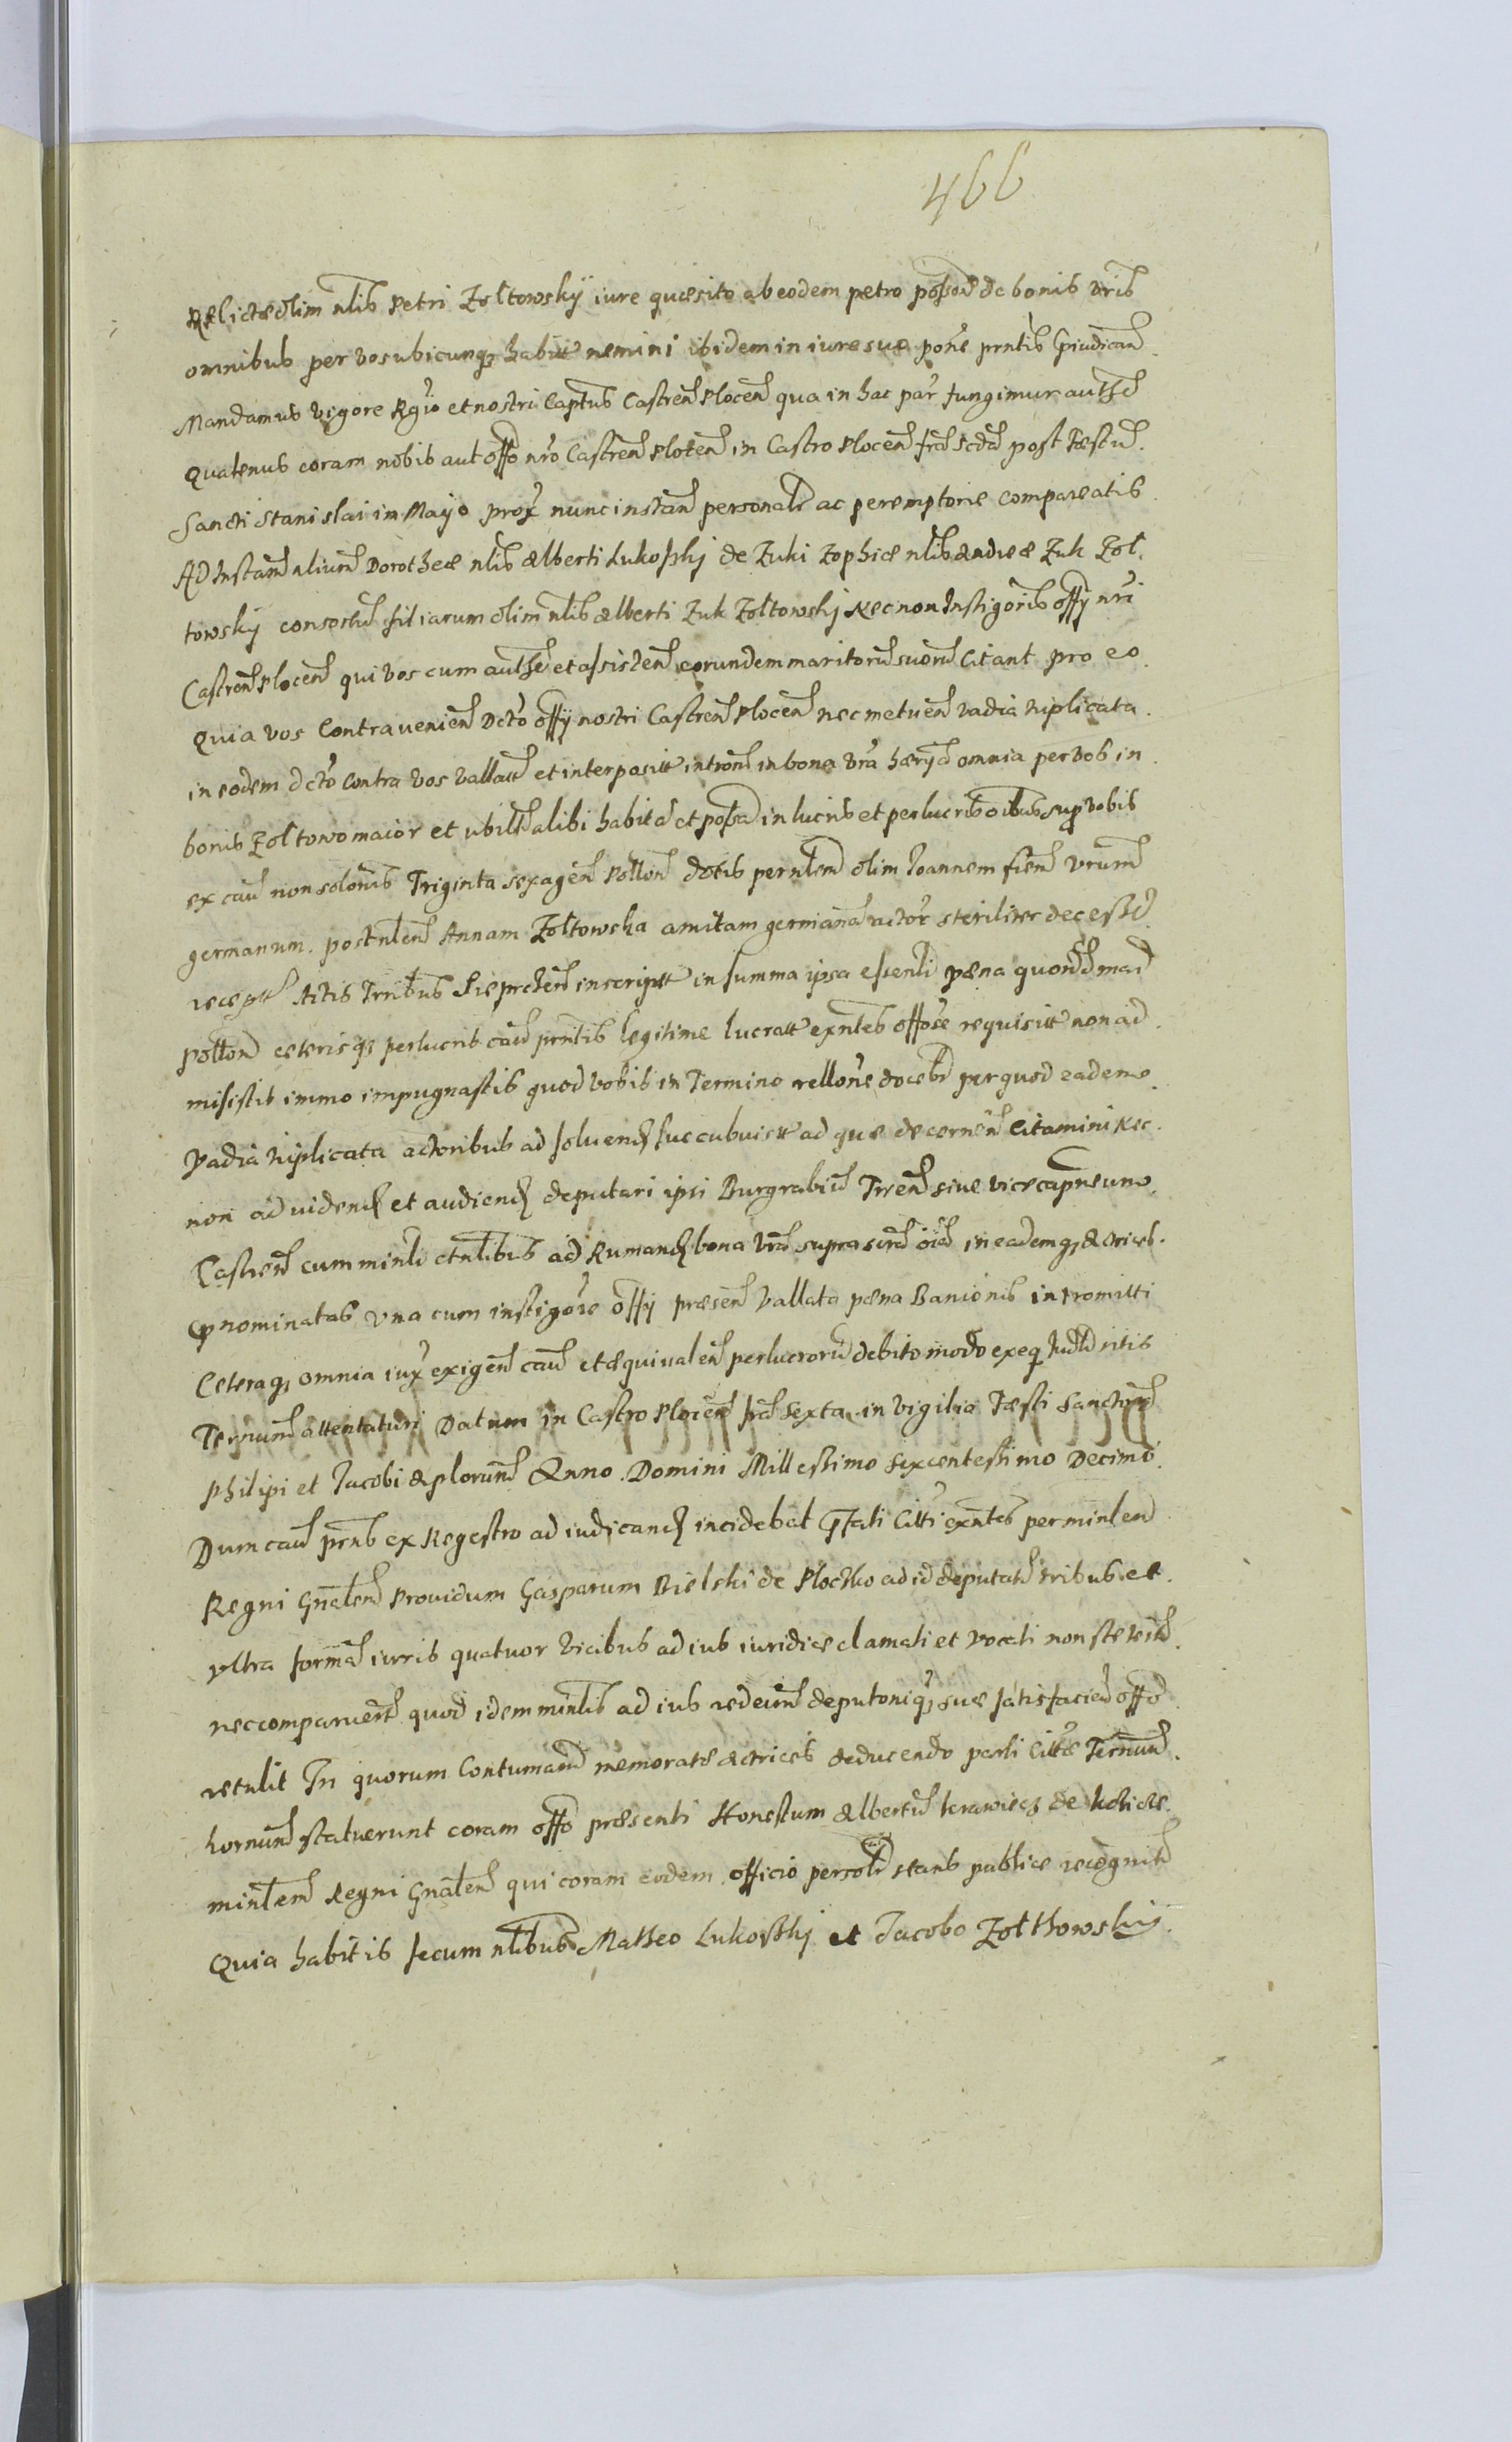 466
Relictæ olim nlis Petri Zoltowskÿ iure quæsito ab eodem petro possō de bonis vris
omnibus per vos ubicunq habitt nemini ibidem in iure suæ pone prntis piudican
Mandamus vigore Rgio et nostri Captus Castren Plocen qua in hac par fungimur authe
Quatenus coram nobis aut offo nro Castren Plocen in Castro Plocen fra scda post Fæstu
Sancti Stanislai in Mayo prox nunc instan personalr ac peremptorie compareatis
Ad Instam nlium Dorotheæ nlis Alberti Lukoskj de Zuki Zophiæ nlis Andreæ Zuk Zol
towskÿ consortu filiarum olim nlis Alberti Zuk Zoltowskj Necnon Instigoris offÿ nri
Castren Plocen qui vos cum authe et assisten eorundem maritoru suoru Citant pro eo
Quia vos Contravenien Dcto offÿ nostri Castren Plocen nec metuen vadia triplicata
in eodem dcto contra vos vallatt et interpositt introm in bona vra hæryd omnia per vos in
bonis Zoltowo maior et ubilt alibi habita et possa in lucris et perlucris oibus sup vobis
ex cau non solonis Triginta sexagen Pollon dotis per nlem olim Joannem frem vrum
germanum post nlem Annam Zoltowska amitam germana actor steriliter decessa
recept Actis Trribus Sieprcen inscriptt in summa ipsa essenli pæna quond mar
pollon ceterisq perlucris cau prntis legitime lucratt exntes offose requisitt non ad
misistis immo impugnastis quod vobis in Termino rellone docebr per quod eadem
vadia triplicata actoribus ad soluend succubuistt ad quæ decernen Citamini Nec
non ad vidend et audiend deputari ipsi Burgrabiu Trren sive vicecapneum
Castren cum minli et nlibus ad Rumand bona vra suprascra oia in eademq Actrices
pnominatas una cum instigore offÿ præsen vallata pæna Banionis intromitti
Ceteraq omnia iux exigen cau et æquivalen perlucroru debito modo exeq Judlr ritis
Ternum attentaturi Datum in Castro Plocen fra Sexta in vigilia Fæsti Sanctorum
Philipi et Jacobi Aplorum Anno Domini Millessimo Sexcentessimo Decimo
Dum cau prns ex Regestro ad iudicand incidebat Citti exntes per minlem
Regni Gnalem Providum Gasparum Bielski de Plocko ad id deputatu tribus et
vltra forma iuris quatuor vicibus ad ius iuridice clamati et vocati non steterut
nec comparuert quod idem minlis ad ius rediens deputoniq suæ satisfacien offo
retulit In quorum Contumam memoratæ Actrices deducendo parti Cittæ Ternum
hornum statuerunt coram offo præsenti Honestum Albertu krawiecz de
minlem Regni Gnalem qui coram eodem officio persolr stans publice recognit
Quia habitis secum nlibus Matheo Lukoskj et Jacobo Zolthowskÿ